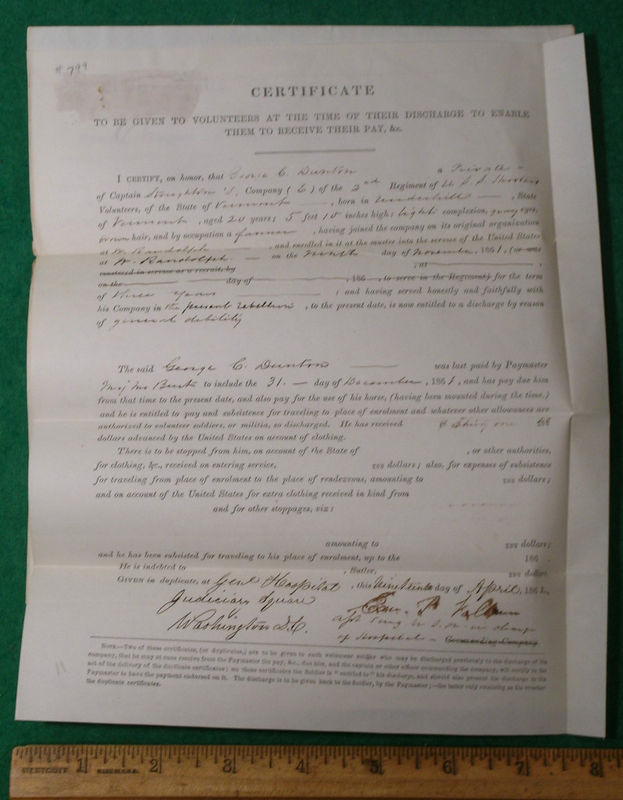 # 799
CERTIFICATE
TO BE GIVEN TO VOLUNTEERS AT THE TIME OF THEIR DISCHARGE TO ENABLE
THEM TO RECEIVE THEIR PAY, &c.
I CERTIFY, on honor, that George C. Dunton a Private
of Captain Stoughton's, Company (E) of the 2nd Regiment of U S S Shooters
Volunteers, of the State of Vermont, born in Underhill, State
of Vermont, aged 20 years; 5 feet 10 inches high; light complexion, gray eyes,
brown hair, and by occupation a farmer, having joined the company on its original organization
at W. Randolph, and enrolled in it at the muster into the service of the United States
at W. Randolph on the Ninth day of November, 1861, (or was
mustered in service as a recruit, by , at ,
on the day of , 186 , to serve in the Regiment) for the term
of three years ; and having served honestly and faithfully with
his Company in the present rebellion, to the present date, is now entitled to a discharge by reason
of general debility
The said George C. Dunton was last paid by Paymaster
to include the 31 day of December, 1861, and has pay due him
from that time to the present date, and also pay for the use of his horse, (having been mounted during the time.)
and he is entitled to pay and subsistence for traveling to place of enrolment and whatever other allowances are
authorized to volunteer soldiers, or militia, so discharged. He has received Thirty one
dollars advanced by the United States on account of clothing.
There is to be stopped from him, on account of the State of , or other authorities,
for clothing, &c., received on entering service, 100 dollars; also, for expenses of subsistence
for traveling from place of enrolment to the place of rendezvous, amounting to 100 dollars;
and on account of the United States for extra clothing received in kind from
and for other stoppages, viz:
amounting to 100 dollars;
and he has been subsisted for traveling to his place of enrolment, up to the 186 .
He is indebted to , Sutler, 100 dollars.
GIVEN in duplicate, at Genl Hospital, this Nineteenth day of April, 1862,
Judiciary Square
Washington D.C.
in charge
of Hospital Commanding Company
NOTE.—Two of these certificates, (or duplicates,) are to be given to each volunteer soldier who may be discharged previously to the discharge of his
company, that he may at once receive from the Paymaster the pay, &c., due him, and the captain or other officer commanding the company, will certify to the
fact of the delivery of the duplicate certificates; on these certificates the Soldier is "entitled to" his discharge, and should also present the discharge to the
Paymaster to have the payment endorsed on it. The discharge is to be given back to the Soldier, by the Paymaster;—the latter only retaining as his voucher
the duplicate certificates.
11
WESTCOTT 1 2 3 4 5 6 7 8